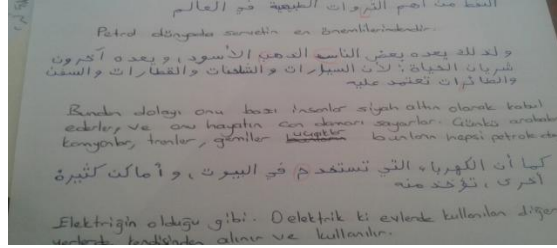 النفط من أهم الثروات الطبيعية في العالم
Petrol dünyada servetin en önemlilerindendir.
ولذلك يعده بعض الناس الذهب الأسود، ويعده آخرون
شريان الحياة؛ لأن السيارات والشاحنات والقطارات والسفن
والطائرات تعتمد عليه
Bundan dolayı onu bazı insanlar siyah altın olarak kabul
ederler, ve onu hayatın can damarı sayarlar. Çünkü arabalar
kamyonlar, trenler, gemiler uçaklar bunların hepsi petrole
كما أن الكهرباء التي تستخدم في البيوت، وأماكن كثيرة
أخرى، تؤخذ منه
Elektriğin olduğu gibi. O elektrik ki evlerde kullanılan diğer
yerlerde kendisinden alınır ve kullanılır.